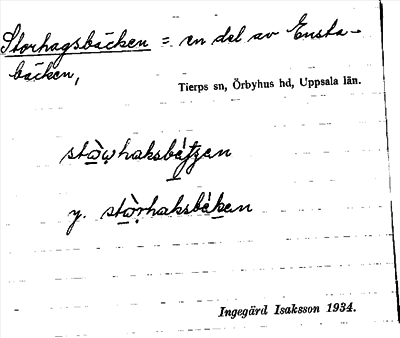 Storhagsbäcken = en del av Ensta-
bäcken,
Tierps sn, Örbyhus hd, Uppsala län.
y. stòrhaksbèken
Ingegärd Isaksson 1934.